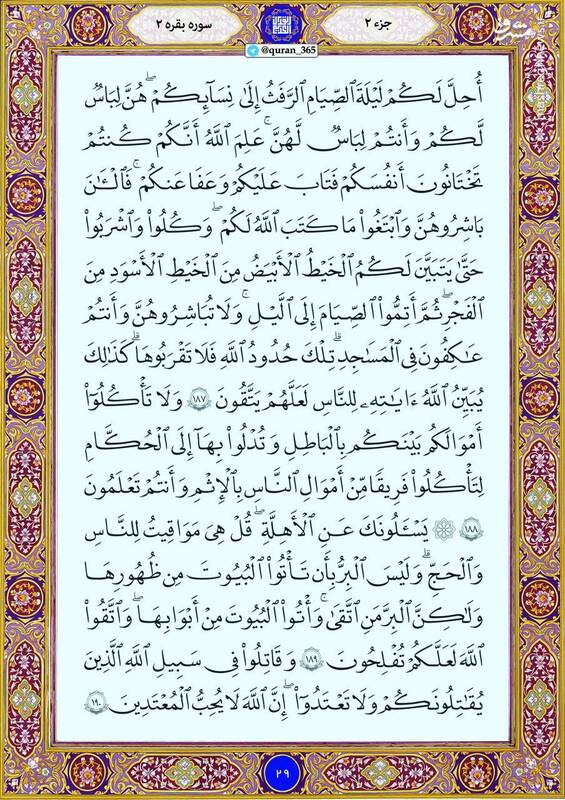 جزء ۲
سوره بقره ۲
@quran_365
أُحِلَّ لَكُمْ لَيْلَةَ ٱلصِّيَامِ ٱلرَّفَثُ إِلَىٰ نِسَآئِكُمْ ۚ هُنَّ لِبَاسٌ
لَّكُمْ وَأَنتُمْ لِبَاسٌ لَّهُنَّ ۗ عَلِمَ ٱللَّهُ أَنَّكُمْ كُنتُمْ
تَخْتَانُونَ أَنفُسَكُمْ فَتَابَ عَلَيْكُمْ وَعَفَا عَنكُمْ ۖ فَٱلْـَٰٔنَ
بَـٰشِرُوهُنَّ وَٱبْتَغُوا۟ مَا كَتَبَ ٱللَّهُ لَكُمْ ۚ وَكُلُوا۟ وَٱشْرَبُوا۟
حَتَّىٰ يَتَبَيَّنَ لَكُمُ ٱلْخَيْطُ ٱلْأَبْيَضُ مِنَ ٱلْخَيْطِ ٱلْأَسْوَدِ مِنَ
ٱلْفَجْرِ ۖ ثُمَّ أَتِمُّوا۟ ٱلصِّيَامَ إِلَى ٱلَّيْلِ ۚ وَلَا تُبَـٰشِرُوهُنَّ وَأَنتُمْ
عَـٰكِفُونَ فِى ٱلْمَسَـٰجِدِ ۗ تِلْكَ حُدُودُ ٱللَّهِ فَلَا تَقْرَبُوهَا ۗ كَذَٰلِكَ
يُبَيِّنُ ٱللَّهُ ءَايَـٰتِهِۦ لِلنَّاسِ لَعَلَّهُمْ يَتَّقُونَ ١٨٧ وَلَا تَأْكُلُوٓا۟
أَمْوَٰلَكُم بَيْنَكُم بِٱلْبَـٰطِلِ وَتُدْلُوا۟ بِهَآ إِلَى ٱلْحُكَّامِ
لِتَأْكُلُوا۟ فَرِيقًا مِّنْ أَمْوَٰلِ ٱلنَّاسِ بِٱلْإِثْمِ وَأَنتُمْ تَعْلَمُونَ
١٨٨ ۞ يَسْـَٔلُونَكَ عَنِ ٱلْأَهِلَّةِ ۖ قُلْ هِىَ مَوَٰقِيتُ لِلنَّاسِ
وَٱلْحَجِّ ۗ وَلَيْسَ ٱلْبِرُّ بِأَن تَأْتُوا۟ ٱلْبُيُوتَ مِن ظُهُورِهَا
وَلَـٰكِنَّ ٱلْبِرَّ مَنِ ٱتَّقَىٰ ۗ وَأْتُوا۟ ٱلْبُيُوتَ مِنْ أَبْوَٰبِهَا ۚ وَٱتَّقُوا۟
ٱللَّهَ لَعَلَّكُمْ تُفْلِحُونَ ١٨٩ وَقَـٰتِلُوا۟ فِى سَبِيلِ ٱللَّهِ ٱلَّذِينَ
يُقَـٰتِلُونَكُمْ وَلَا تَعْتَدُوٓا۟ ۚ إِنَّ ٱللَّهَ لَا يُحِبُّ ٱلْمُعْتَدِينَ ١٩٠
۲۹